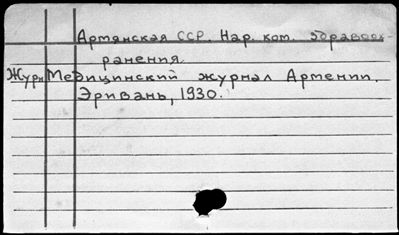 Армянская ССР. Нар. ком. здравоох-
ранения.
Журн Медицинский журнал Армении.
Эривань, 1930.